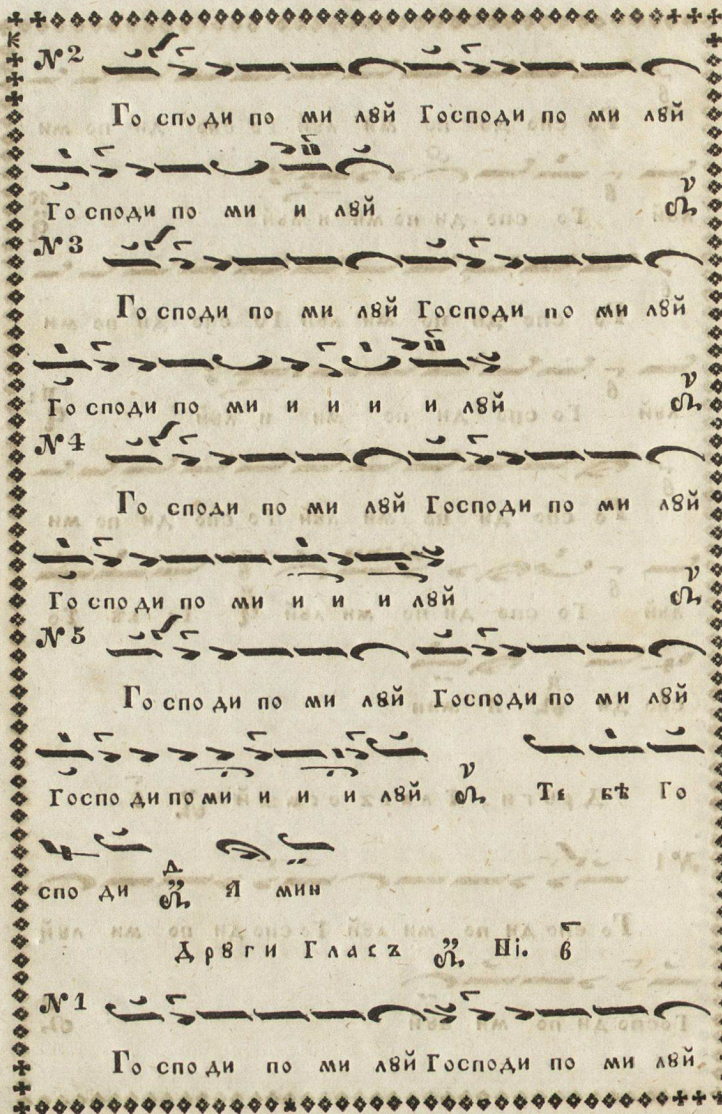 № 2
Го спо ди по ми лꙋй Господи по ми лꙋй
Го споди по ми и лꙋй
№ 3
Го споди по ми лꙋй Господи по ми лꙋй
Го споди по ми и и и и лꙋй
№ 4
Го споди по ми лꙋй Господи по ми лꙋй
Го спо ди по ми и и и лꙋй
№ 5
Го спо ди по ми лꙋй Господи по ми лꙋй
Госпо ди по ми и и и лꙋй Те бѣ Го
спо ди А мин
Дрꙋги Гласъ
№ 1
Го спо ди по ми лꙋй Господи по ми лꙋй